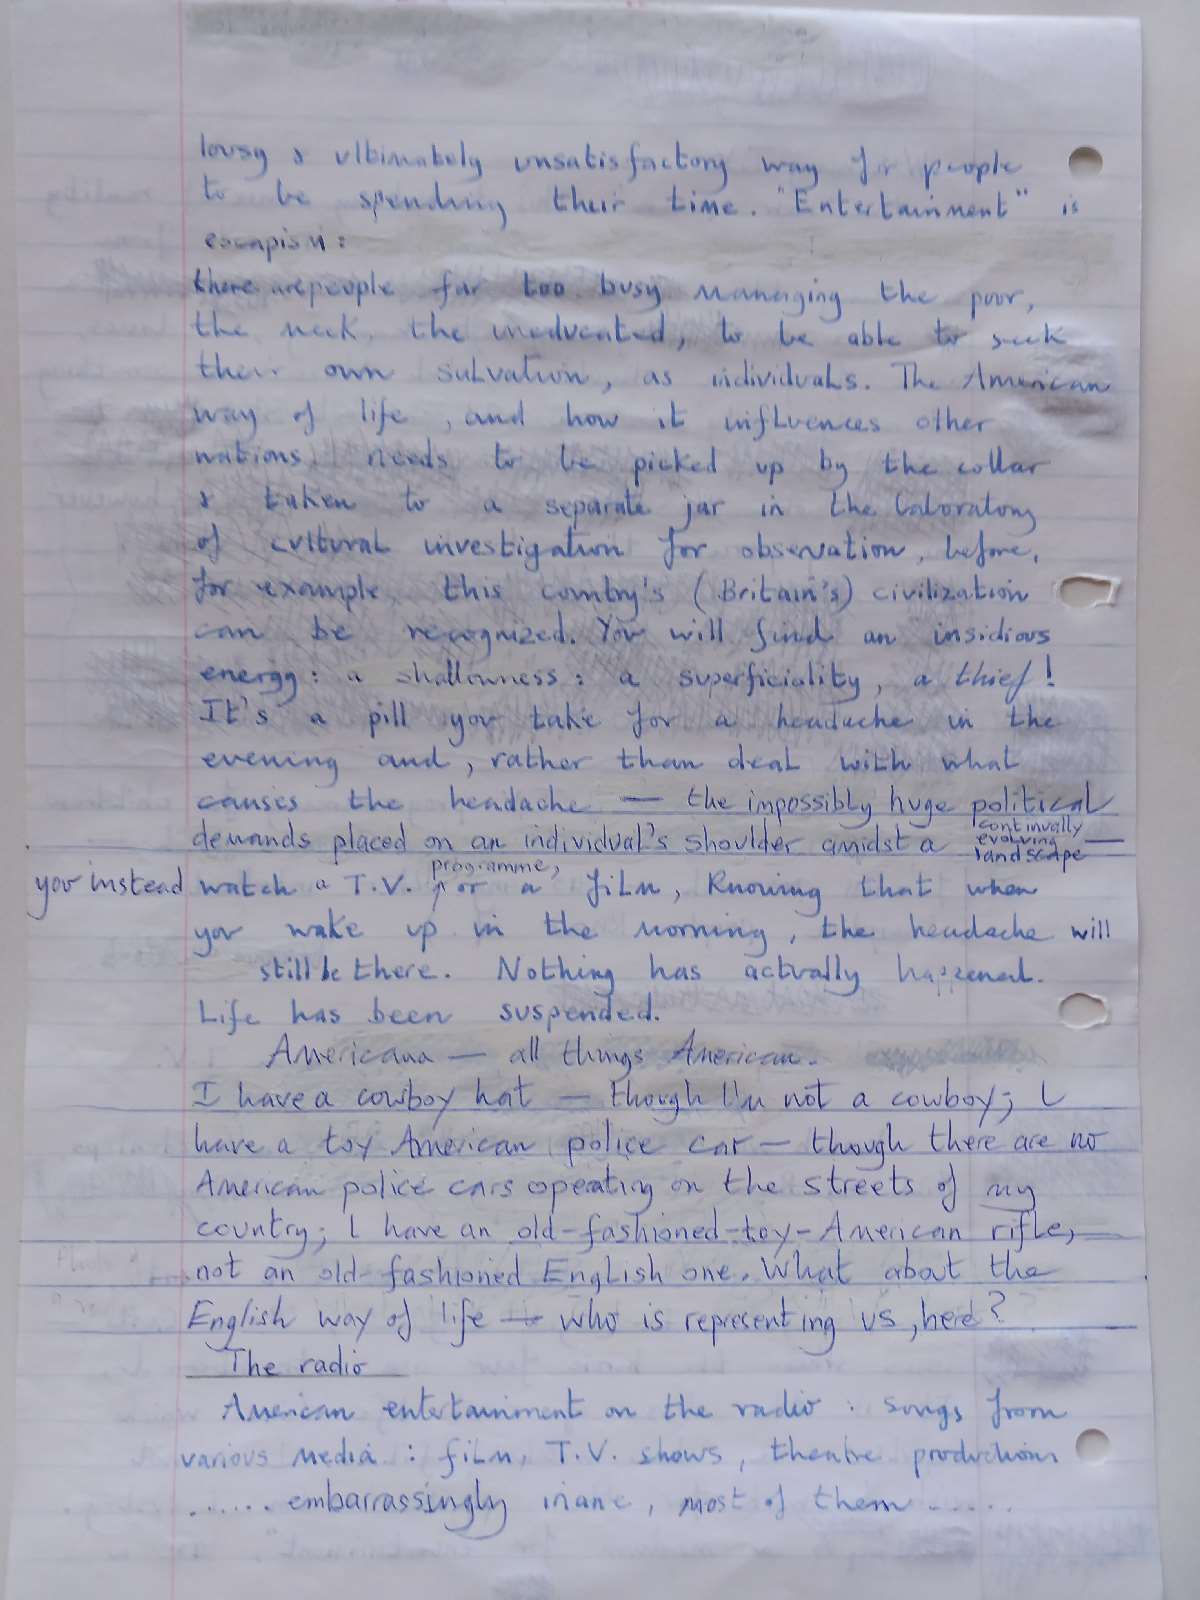 lousy & ultimately unsatisfactory way for people
to be spending their time. "Entertainment" is
escapism:
there are people far too busy managing the poor,
the meek, the uneducated, to be able to seek
their own salvation, as individuals. The American
way of life, and how it influences other
nations needs to be picked up by the collar
& taken to a separate jar in the laboratory
of cultural investigation for observation, before,
for example, this country's (Britain's) civilization
can be recognized. You will find an insidious
energy: a shallowness: a superficiality, a thief!
It's a pill you take for a headache in the
evening and, rather than deal with what
causes the headache — the impossibly huge political
demands placed on an individual's shoulder amidst a continually evolving landscape —
you instead watch a T.V. programme, or a film, knowing that when
you wake up in the morning, the headache will
still be there. Nothing has actually happened.
Life has been suspended.
Americana — all things American.
I have a cowboy hat — though I'm not a cowboy; I
have a toy American police car — though there are no
American police cars operating on the streets of my
country; I have an old-fashioned-toy-American rifle,
not an old-fashioned English one. What about the
English way of life — who is representing us, here?
The radio
American entertainment on the radio: songs from
various media: film, T.V. shows, theatre productions
...... embarrassingly inane, most of them .....